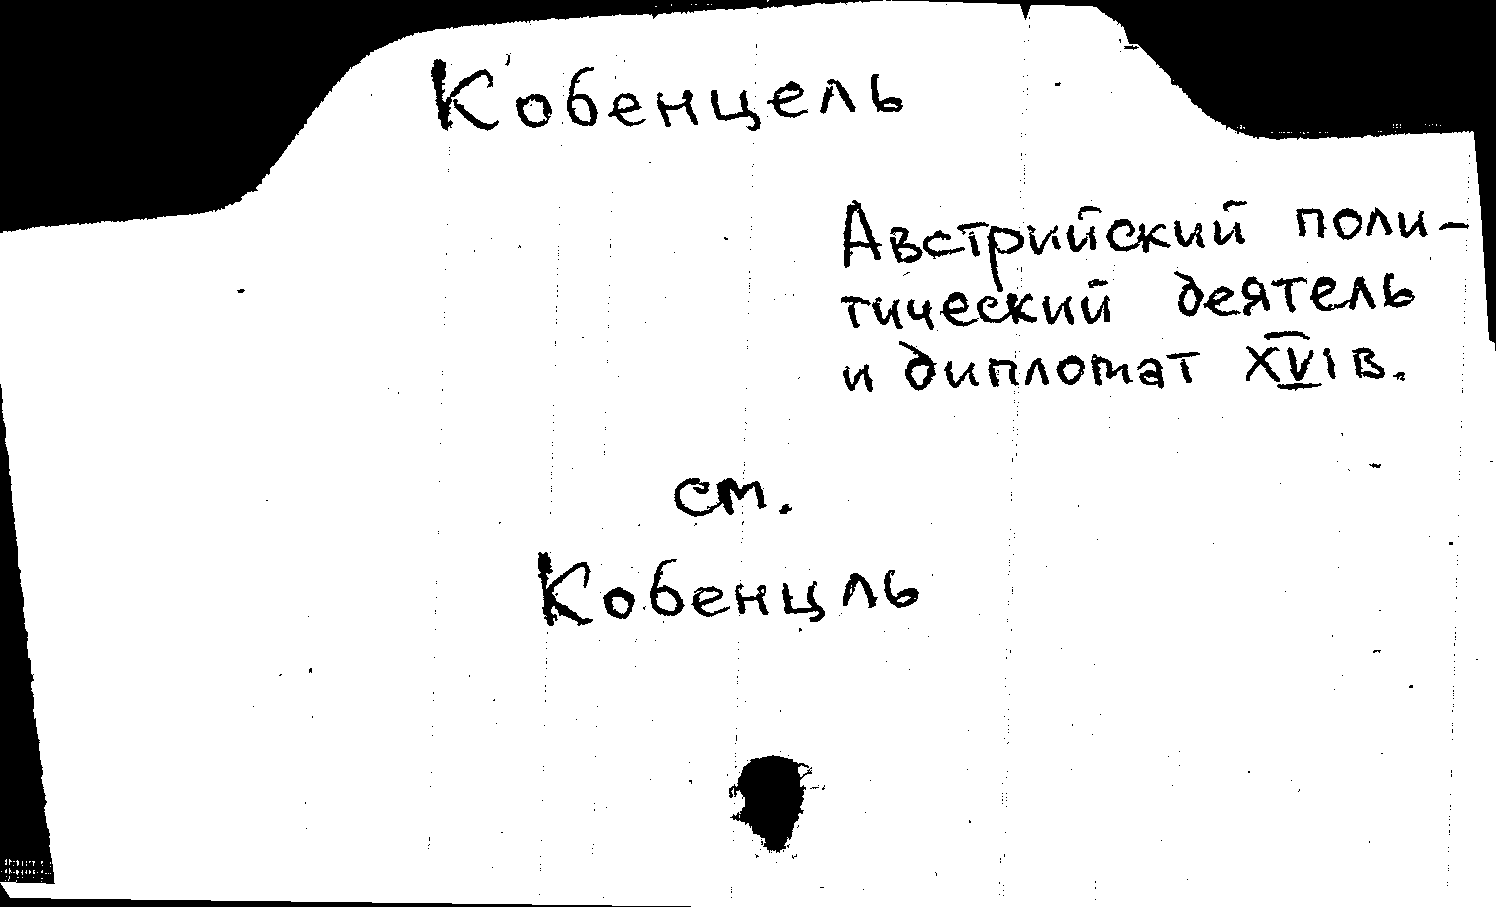 Кобенцель
Австрийский поли-
тический деятель
и дипломат XVI в.
см.
Кобенцль